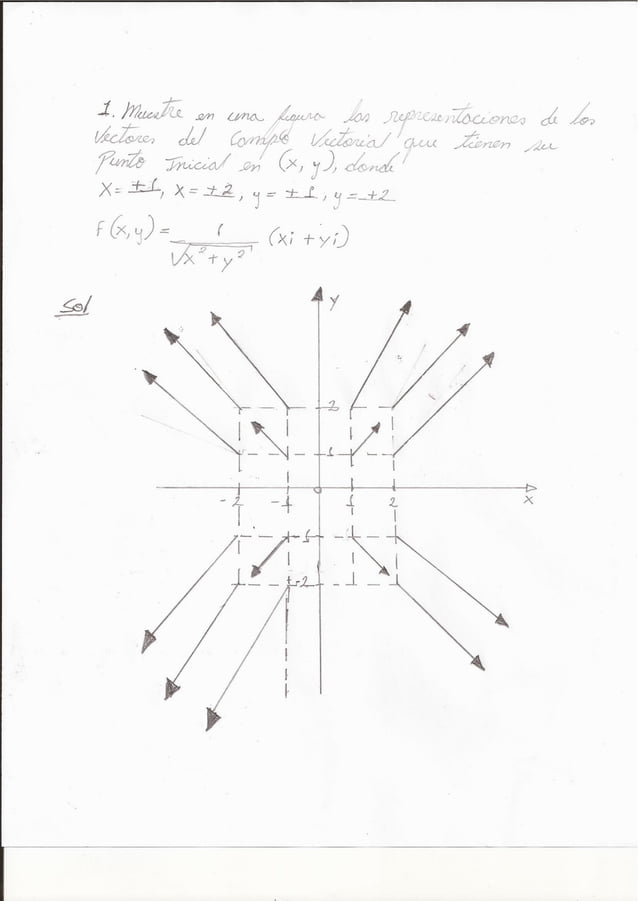 1. Muestre en una figura las representaciones de los
Vectores del Campo Vectorial que tienen su
Punto Inicial en (x, y), donde
X = ±1, X = ±2, y = ±1, y = ±2
F(x,y) = 1/√x²+y² (xi + yi)
Sol
Y
2
1
-2 -1 0 1 2 X
-1
-2